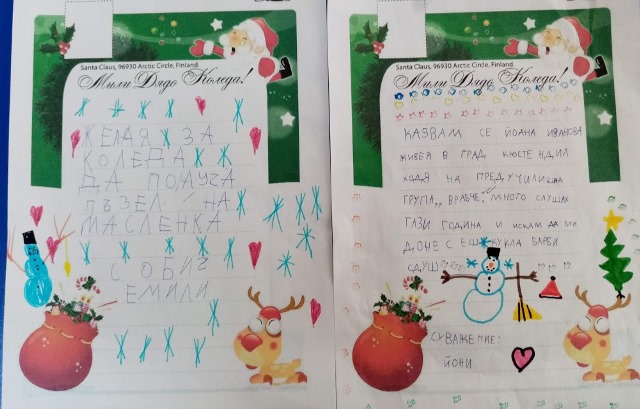 Santa Claus, 96930 Arctic Circle, Finland.
Мили Дядо Коледа!
ЖЕЛАЯ ЗА
КОЛЕДА
ДА ПОЛУЧА
ПЪЗЕЛ: НА
МАСЛЕНКА
С ОБИЧ
ЕМИЛИ
Santa Claus, 96930 Arctic Circle, Finland.
Мили Дядо Коледа!
КАЗВАМ СЕ ЙОАНА ИВАНОВА
ЖИВЕЯ В ГРАД КЮСТЕНДИЛ
ХОДЯ НА ПРЕДУЧИЛИЩНА
ГРУПА „ ВРАБЧЕ." МНОГО СЛУШАХ
ТАЗИ ГОДИНА И ИСКАМ ДА МИ
ДОНЕСЕШ КУКЛА БАРБИ
СДУШ
СУВАЖЕНИЕ:
ЙОНИ